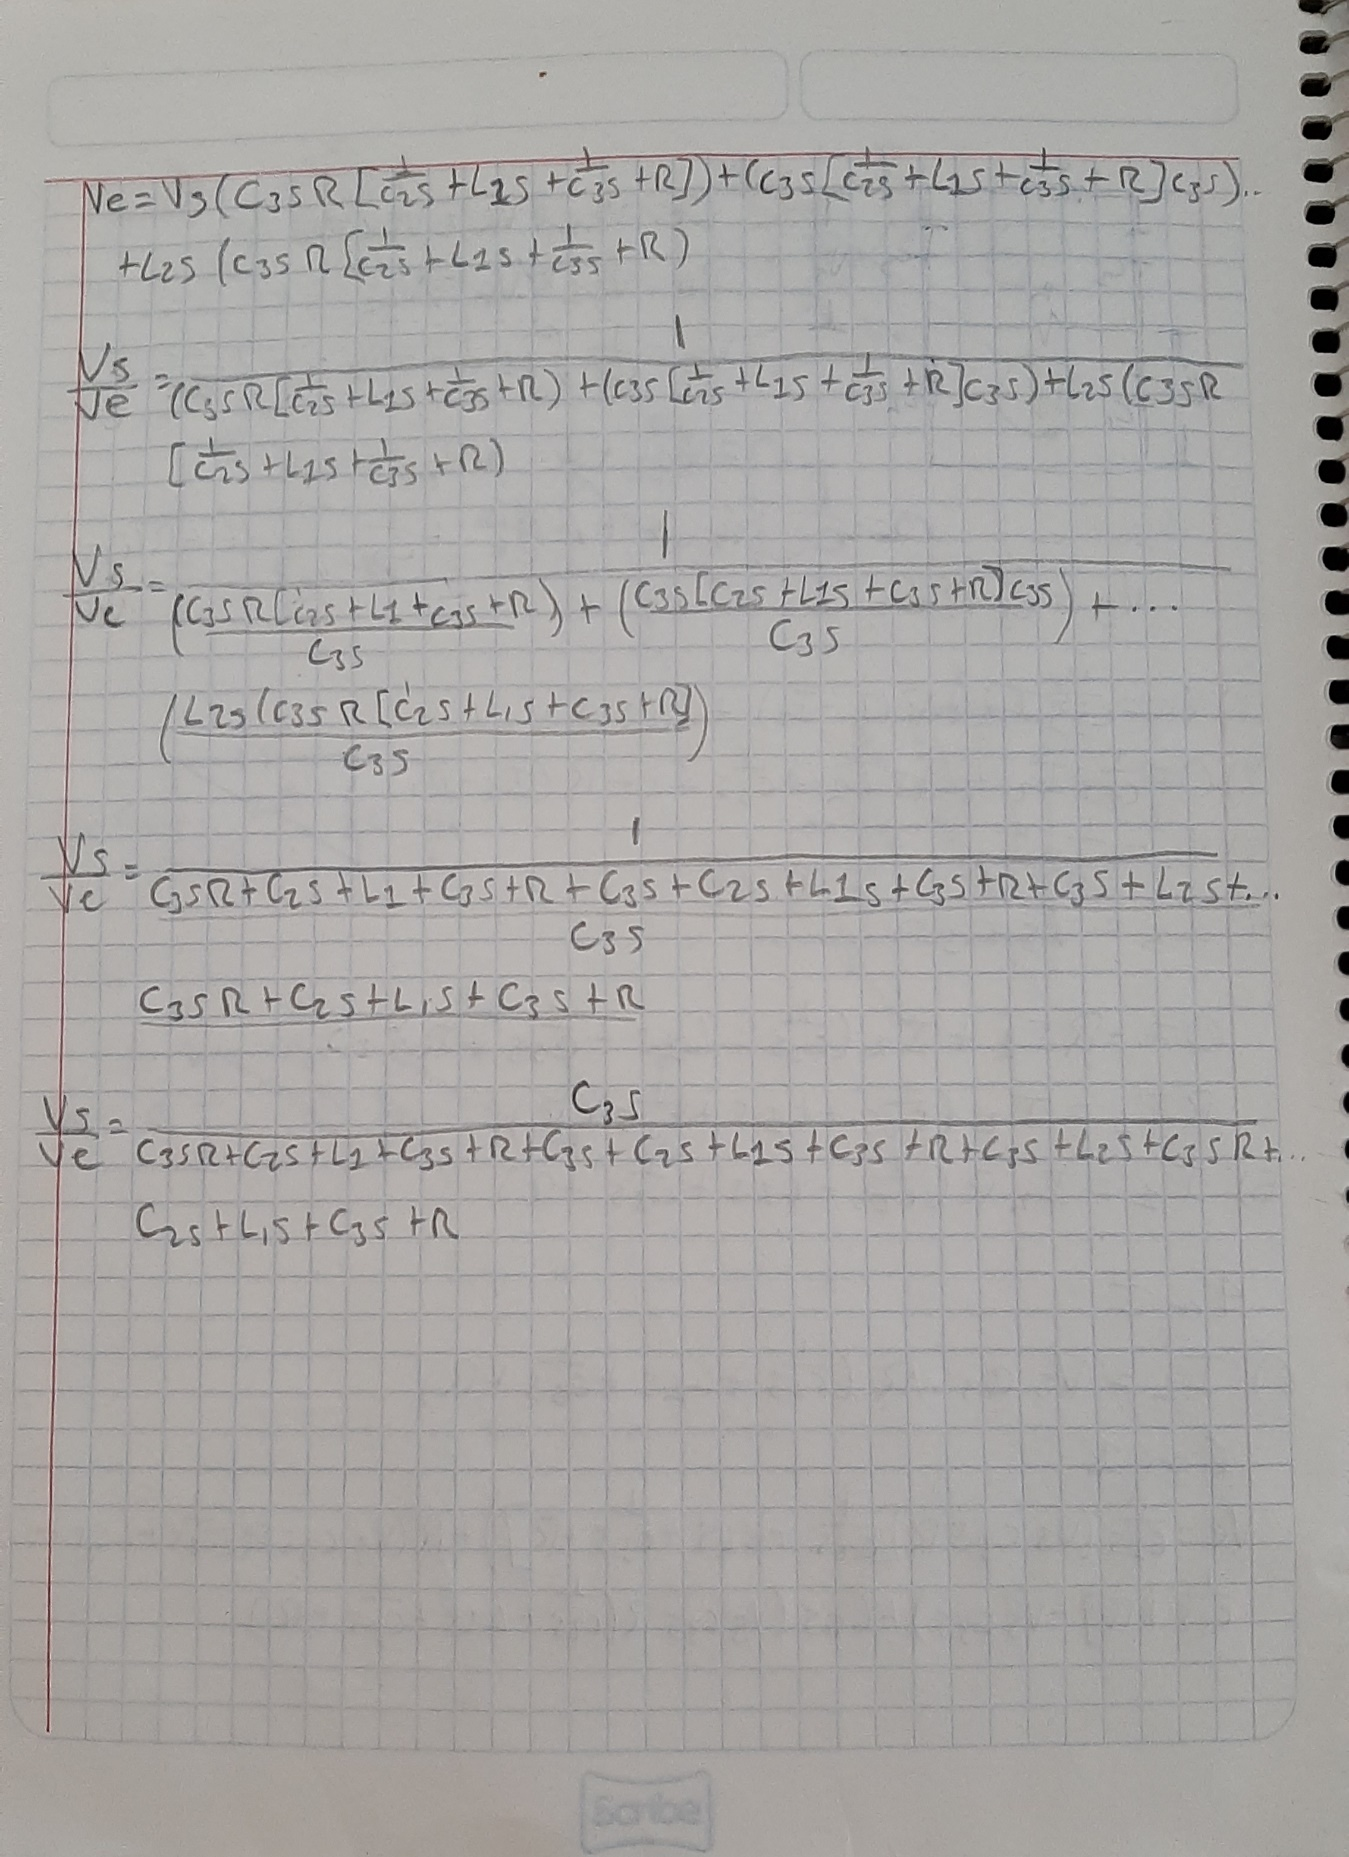 Ve = Vs (C3SR [1/C2S + L1S + 1/C3S + R]) + (C3S [1/C2S + L1S + 1/C3S + R] C3S)..
+L2S (C3SR [1/C2S + L1S + 1/C3S + R)
Vs/Ve = 1/(C3SR[1/C2S + L1S + 1/C3S + R) + (C3S [1/C2S + L1S + 1/C3S + R] C3S) + L2S (C3SR
[1/C2S + L1S + 1/C3S + R)
Vs/Ve = 1/((C3SR[C2S + L1 + C3S + R)/C3S) + (C3S[C2S + L1S + C3S + R] C3S/C3S) + ...
(L2S (C3SR [C2S + L1S + C3S + R]/C3S)
Vs/Ve = 1/C3SR + C2S + L1 + C3S + R + C3S + C2S + L1S + C3S + R + C3S + L2S + ...
C3S
C3SR + C2S + L1S + C3S + R
Vs/Ve = C3S/C3SR + C2S + L1 + C3S + R + C3S + C2S + L1S + C3S + R + C3S + L2S + C3SR + ...
C2S + L1S + C3S + R
Scribe